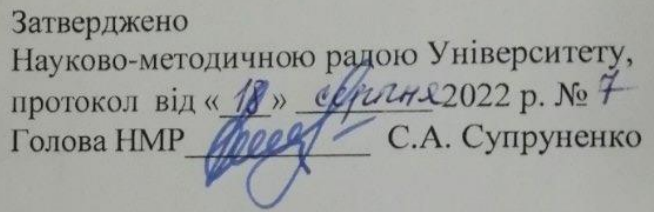 Затверджено
Науково-методичною радою Університету,
протокол від «18» серпня 2022 р. № 7
Голова НМР С.А. Супруненко